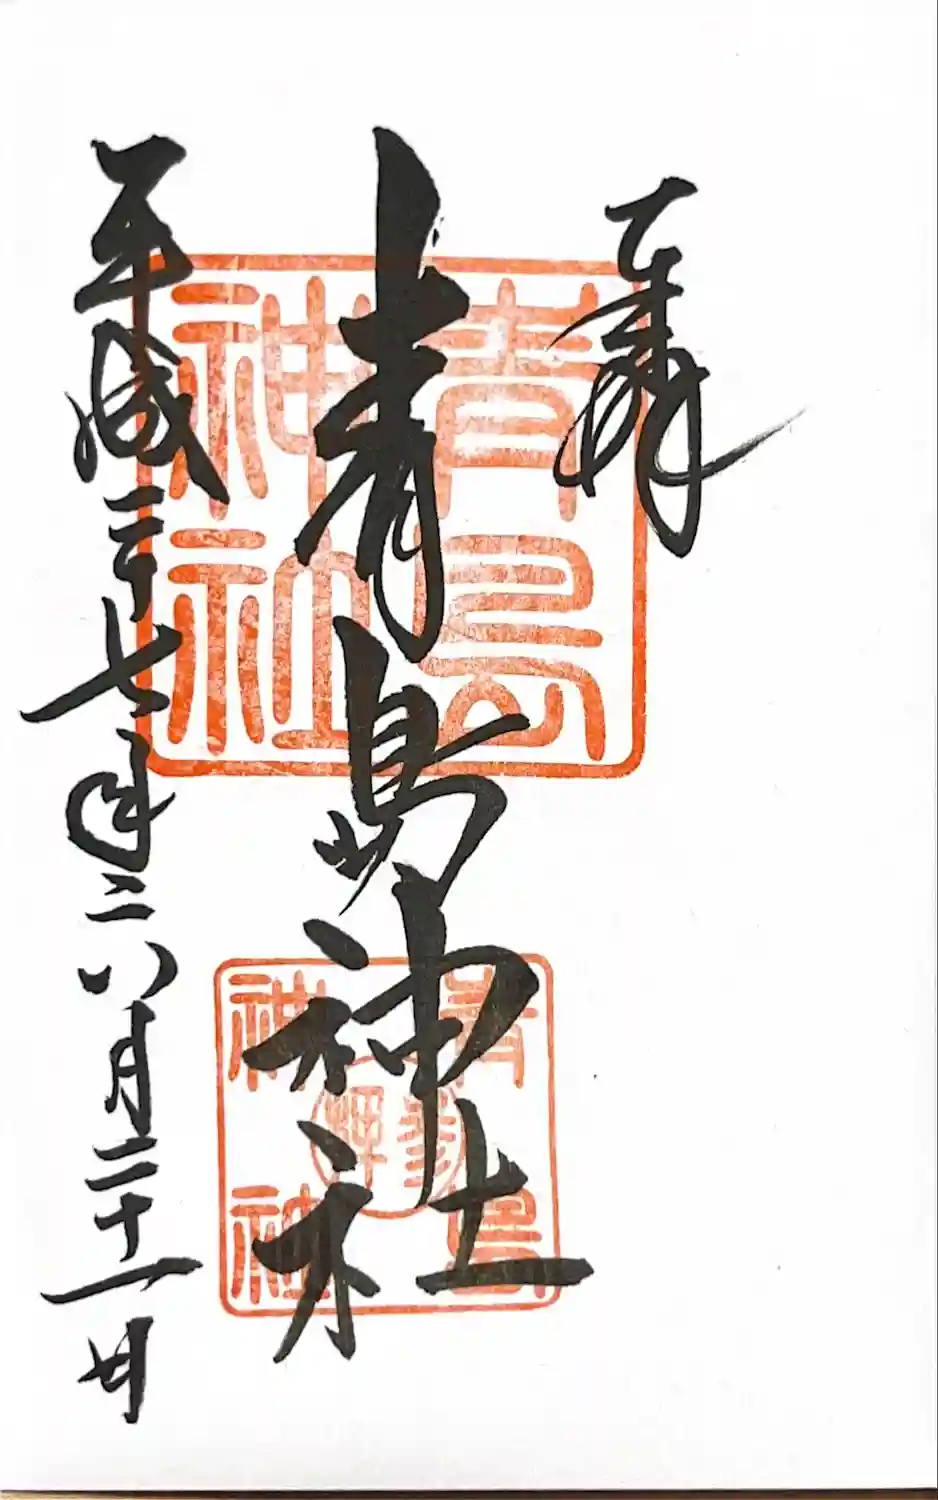 奉拝
青島神社
平成二十七年六月二十一日
青島
神社
青島
神社
参拝